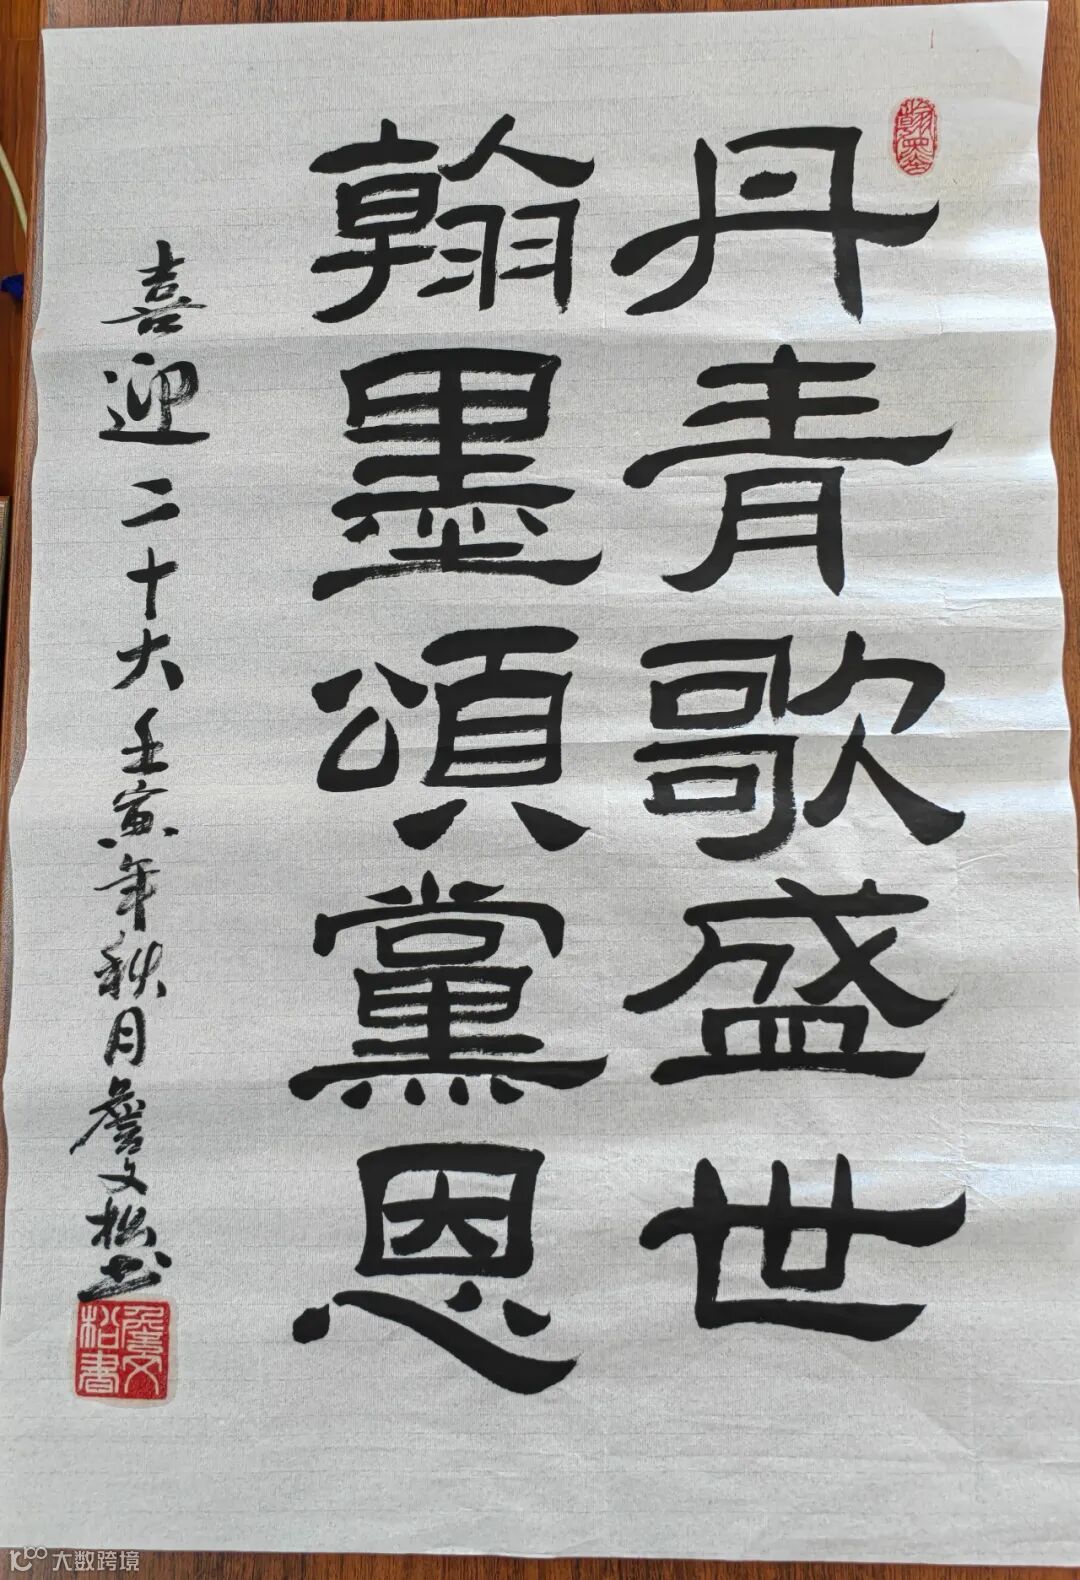 丹青歌盛世
翰墨頌黨恩
喜迎二十大壬寅年秋月詹文松书
翰墨
詹文松書
大数跨境